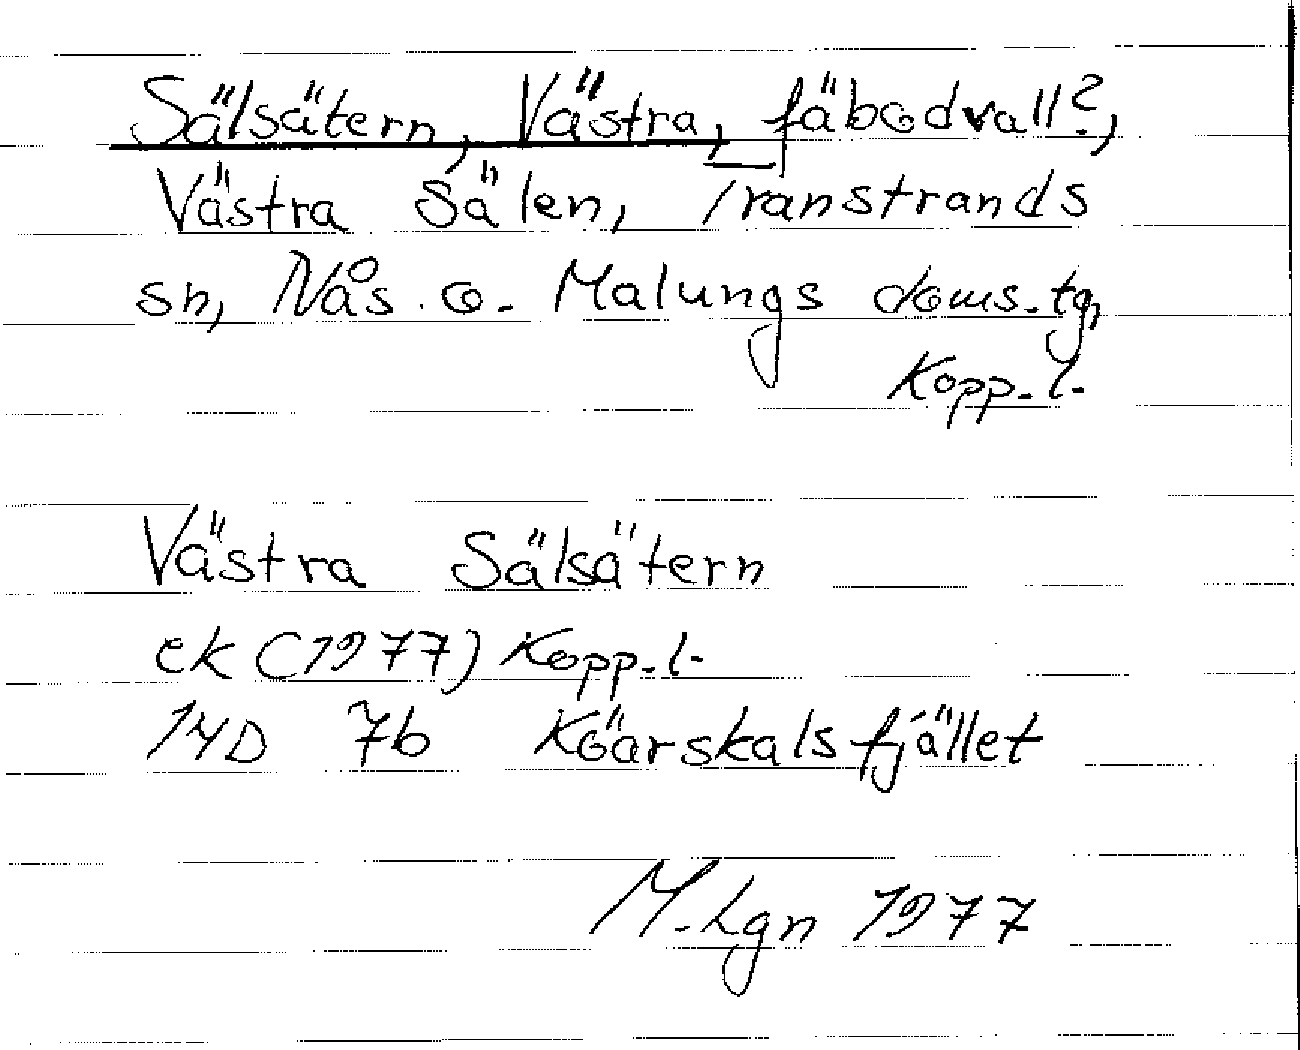 Sälsätern, Västra, fäbodvall?,
Västra Sälen, Transtrands
sn, Nås o. Malungs doms.tg,
Kopp.l.
Västra Sälsätern
ek (1977) Kopp.l.
14D 7b Köarskalsfjället
M.Lgn 1977